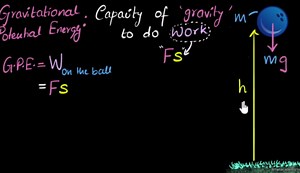 Gravitational Potential Energy: Capacity of 'gravity' to do work
"Fs"
G.P.E. = W on the ball
= Fs
m
mg
h